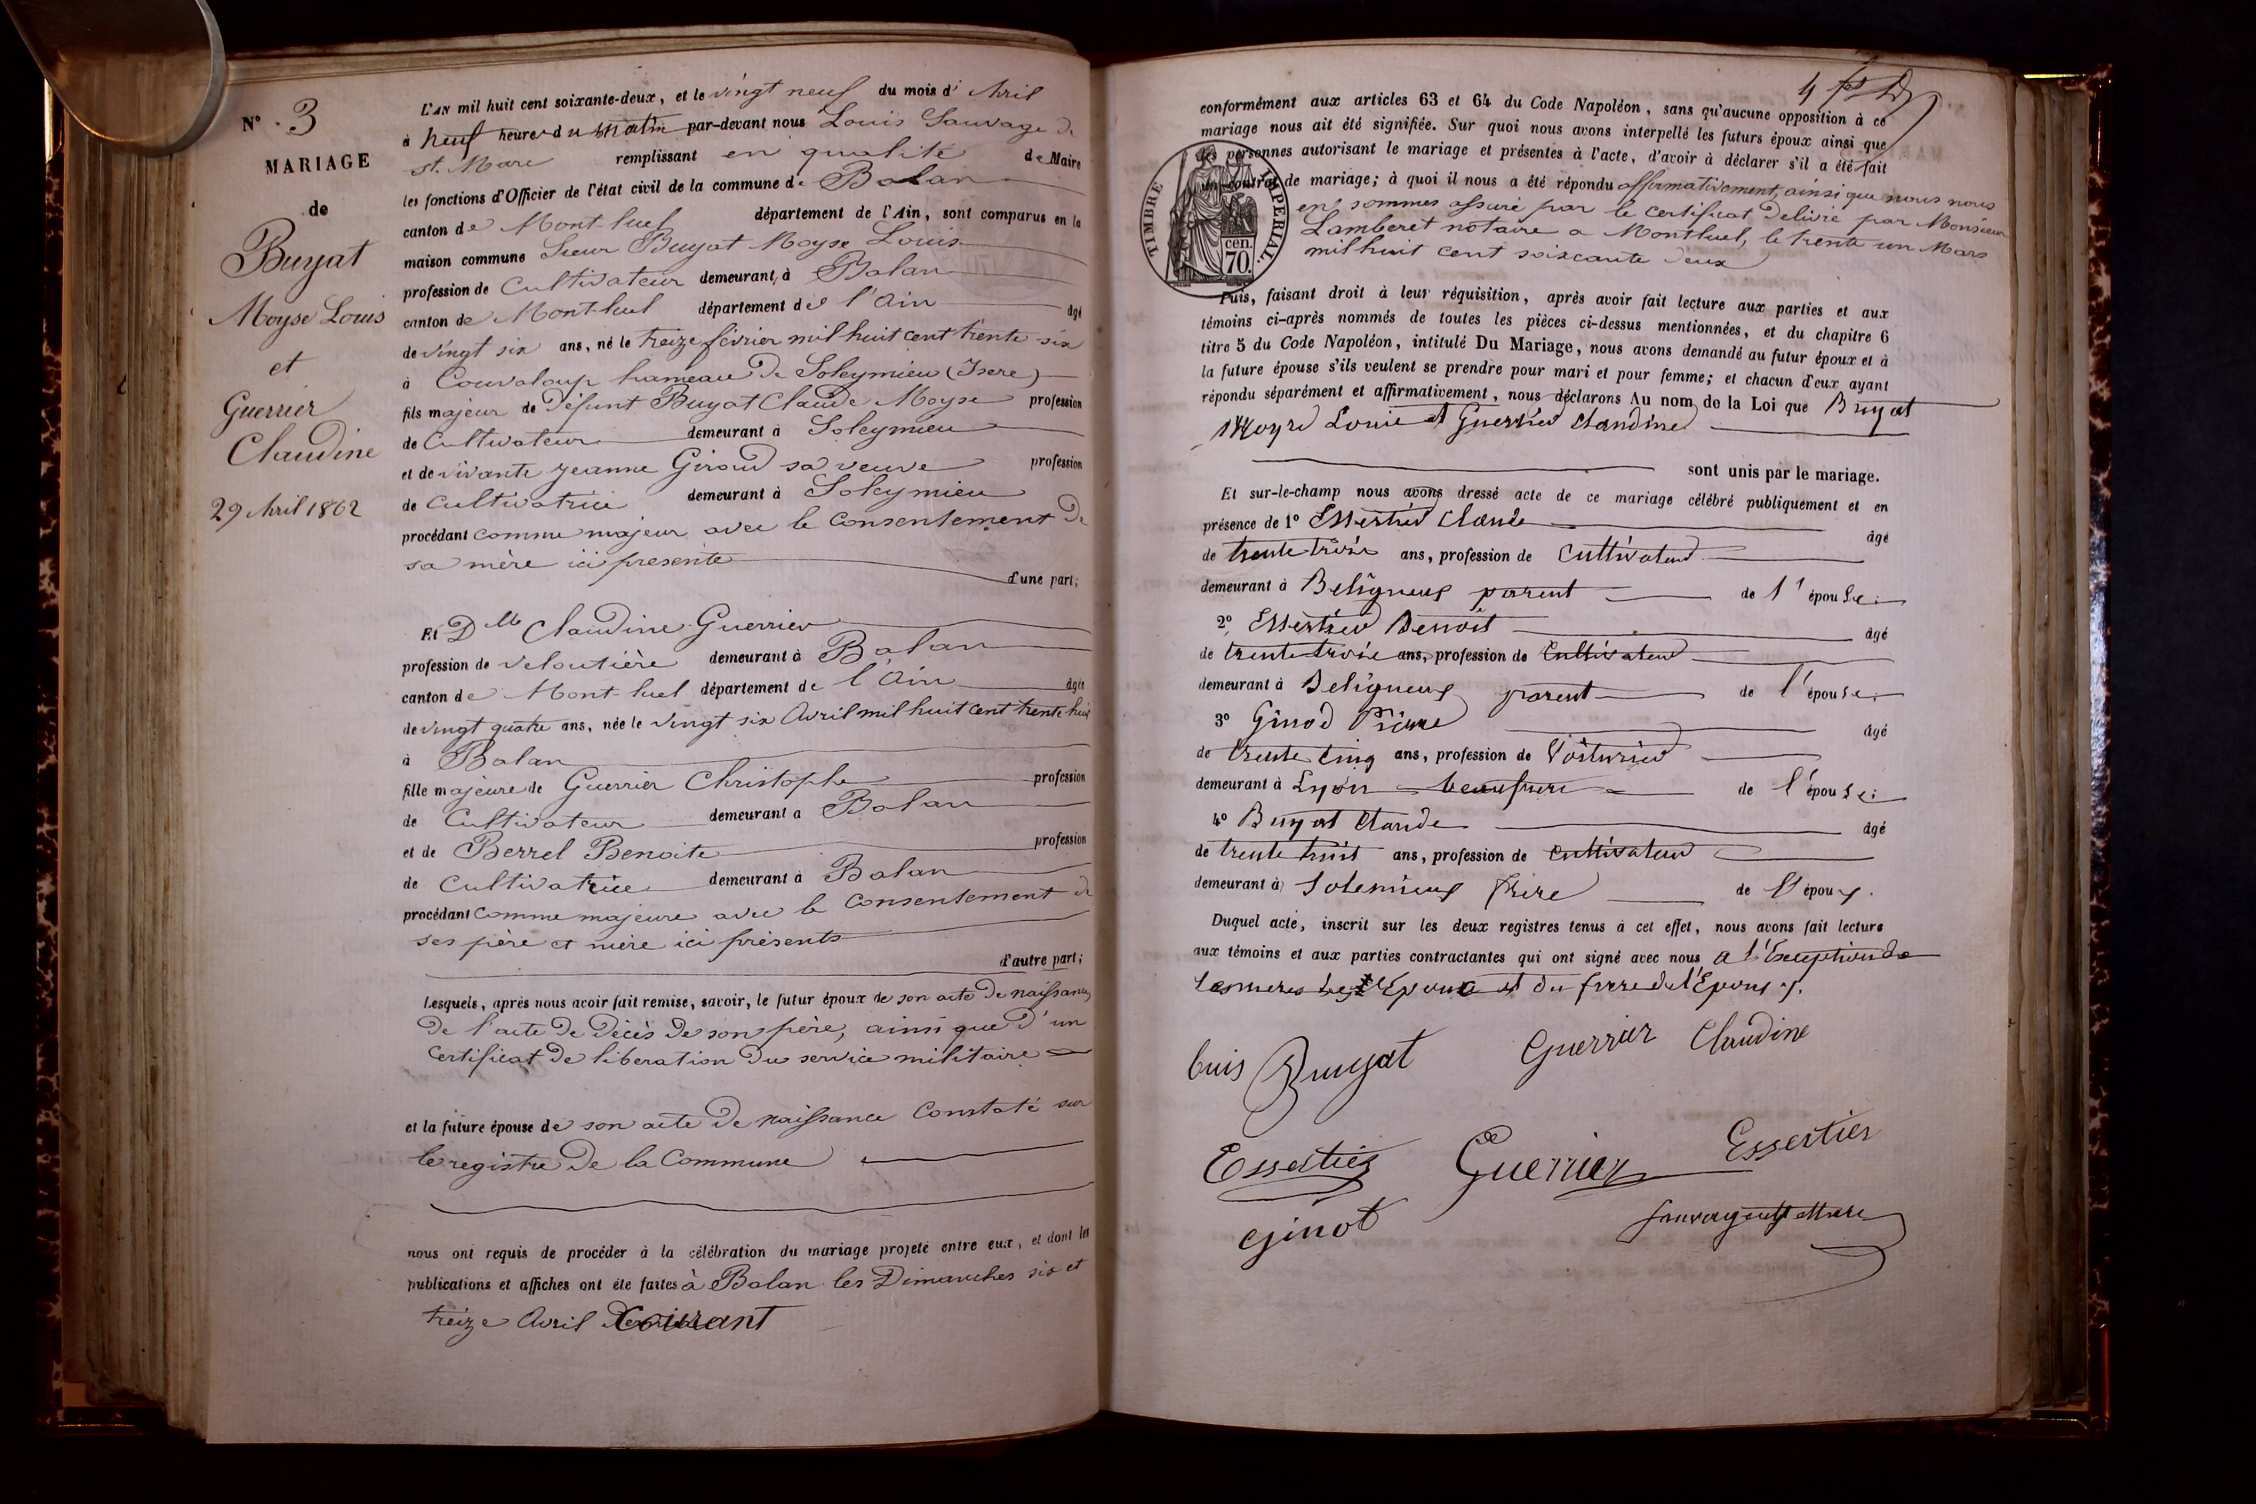 N° 3
MARIAGE
de
Buyat
Moyse Louis
et
Guerrier
Claudine
29 Avril 1862
L'AN mil huit cent soixante-deux, et le vingt neuf du mois d'Avril
à neuf heures du matin par-devant nous Louis Sauvage de
St. Marc remplissant en qualité de Maire
les fonctions d'Officier de l'état civil de la commune de Balan
canton de Mont-luel département de l'Ain, sont comparus en la
maison commune Sieur Buyat Moyse Louis
profession de Cultivateur demeurant à Balan
canton de Mont-luel département de l'Ain âgé
de vingt six ans, né le treize février mil huit cent trente six
à Couvaloup hameau de Soleymieu (Isere)
fils majeur de Défunt Buyat Claude Moyse profession
de Cultivateur demeurant à Soleymieu
et de vivante Jeanne Giroud sa veuve profession
de Cultivatrice demeurant à Soleymieu
procédant comme majeur avec le consentement de
sa mère ici presente
d'une part;
Et Dlle Claudine Guerrier
profession de veloutière demeurant à Balan
canton de Mont-luel département de l'Ain âgée
de vingt quatre ans, née le vingt six Avril mil huit cent trente huit
à Balan
fille majeure de Guerrier Christophe profession
de Cultivateur demeurant a Balan
et de Berrel Benoite profession
de Cultivatrice demeurant à Balan
procédant comme majeure avec le consentement de
ses père et mère ici présents
d'autre part;
Lesquels, après nous avoir fait remise, savoir, le futur époux de son acte de naissance,
de l'acte de décès de son père, ainsi que d'un
certificat de liberation du service militaire
et la future épouse de son acte de naissance constaté sur
le registre de la Commune
nous ont requis de procéder à la célébration du mariage projeté entre eux, et dont les
publications et affiches ont été faites à Balan les Dimanches six et
treize Avril Courant
4
conformément aux articles 63 et 64 du Code Napoléon, sans qu'aucune opposition à ce
mariage nous ait été signifiée. Sur quoi nous avons interpellé les futurs époux ainsi que
des personnes autorisant le mariage et présentes à l'acte, d'avoir à déclarer s'il a été fait
un contrat de mariage; à quoi il nous a été répondu affirmativement, ainsi que nous nous
en sommes assuré par le certificat délivré par Monsieur
Lamberet notaire a Montluel, le trente un Mars
mil huit cent soixante deux
TIMBRE IMPERIAL
cen.
70.
Puis, faisant droit à leur réquisition, après avoir fait lecture aux parties et aux
témoins ci-après nommés de toutes les pièces ci-dessus mentionnées, et du chapitre 6
titre 5 du Code Napoléon, intitulé Du Mariage, nous avons demandé au futur époux et à
la future épouse s'ils veulent se prendre pour mari et pour femme; et chacun d'eux ayant
répondu séparément et affirmativement, nous déclarons Au nom de la Loi que Buyat
Moyse Louis et Guerrier Claudine
sont unis par le mariage.
Et sur-le-champ nous avons dressé acte de ce mariage célébré publiquement et en
présence de 1° Essertier Claude âgé
de trente trois ans, profession de Cultivateur
demeurant à Beligneux parent de l'épouse.
2° Essertier Benoit âgé
de trente trois ans, profession de Cultivateur
demeurant à Beligneux parent de l'épouse.
3° Ginod Pierre âgé
de trente cinq ans, profession de Voiturier
demeurant à Lyon beaufrere de l'épouse.
4° Buyat Claude âgé
de trente huit ans, profession de Cultivateur
demeurant à Solemieux frère de l'époux.
Duquel acte, inscrit sur les deux registres tenus à cet effet, nous avons fait lecture
aux témoins et aux parties contractantes qui ont signé avec nous a l'Exception de
les meres des Epoux et du frere de l'Epoux.
Louis Buyat Guerrier Claudine
Essertier Guerrier Essertier
Ginot Sauvage de St Marc